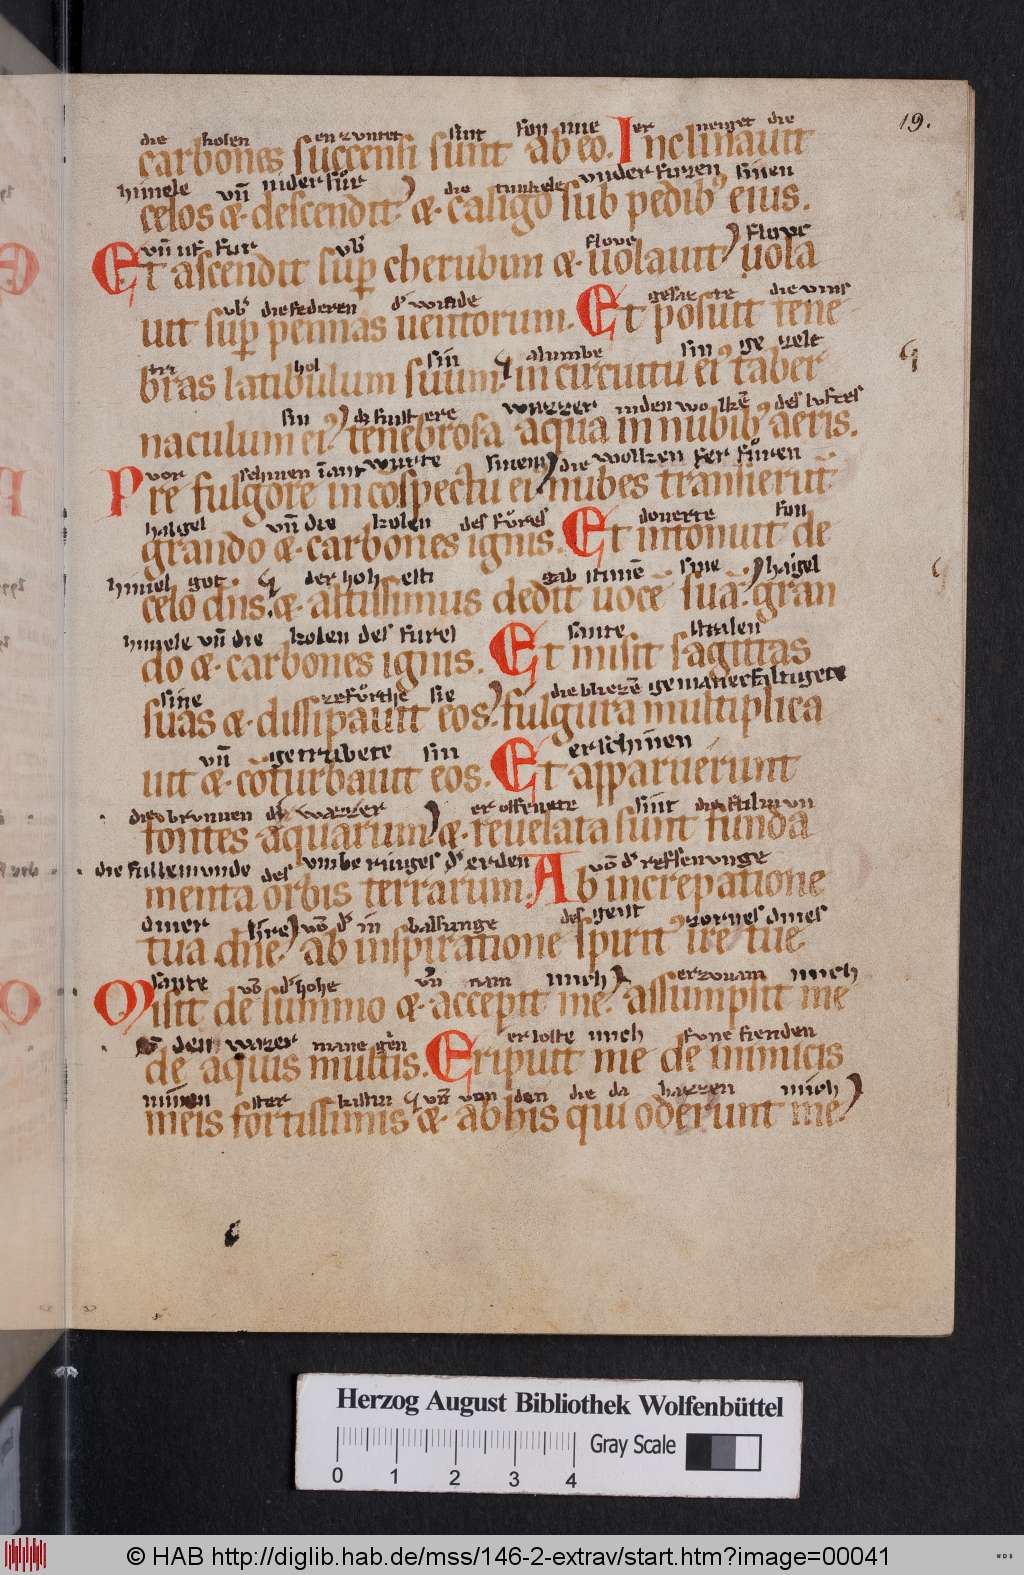 19.
die kolen enzuntet sint fon ime er neiget die
carbones succensi sunt ab eo. Inclinauit
himele vn̄ nider fůr die tunkele vnder fuzen sinen
celos ⁊ descendit ⁊ caligo sub pedib' eius.
vn̄ uf fur vb' flovc flovc
Et ascendit sup cherubim ⁊ uolauit uola
vb' die federen d' winde gesazte die vins
uit sup pennas uentorum. Et posuit tene
tri hol sin alumbe sin ge zelt
bras latibulum suum in circuitu ei' taber
sin wazzer inden wolkē des luftes
naculum ei' tenebrosa aqua in nubib' aeris.
vor schinen wurte sinem die wollzen fůren
Pre fulgore in cōspectu ei' nubes transierūt
hagel vn̄ die kolen des fůres donerte fon
grando ⁊ carbones ignis. Et intonuit de
himel got der hoh esti gab stimē sine hagel
celo dn̄s ⁊ altissimus dedit uocē suā gran
himele vn̄ die kolen des fures sante stralen
do ⁊ carbones ignis. Et misit sagittas
sine zefůrthe sie die blicze
suas ⁊ dissipauit eos fulgura multiplica
vn̄ getrubete sin erschinen
uit ⁊ cōturbauit eos. Et apparuerunt
die brunnen wazzer er offenete sint
fontes aquarum ⁊ reuelata sunt funda
die fullemunde des vmberinges d' erden vō d' reffenunge
menta orbis terrarum. Ab increpatione
diner vō d' in balsunge des geist zornes dines
tua dn̄e ab inspiratione spirit' ire tue
sante vō d' hohe vn̄ nam mich erzouam mich
Misit de summo ⁊ accepit me assumpsit me
den wazer manegen erloste mich fone fienden
de aquis multis. Eripuit me de inimicis
minen vn̄ von den die da hazzen mich
meis fortissimis ⁊ ab his qui oderunt me
Herzog August Bibliothek Wolfenbüttel
Gray Scale
0 1 2 3 4
© HAB http://diglib.hab.de/mss/146-2-extrav/start.htm?image=00041